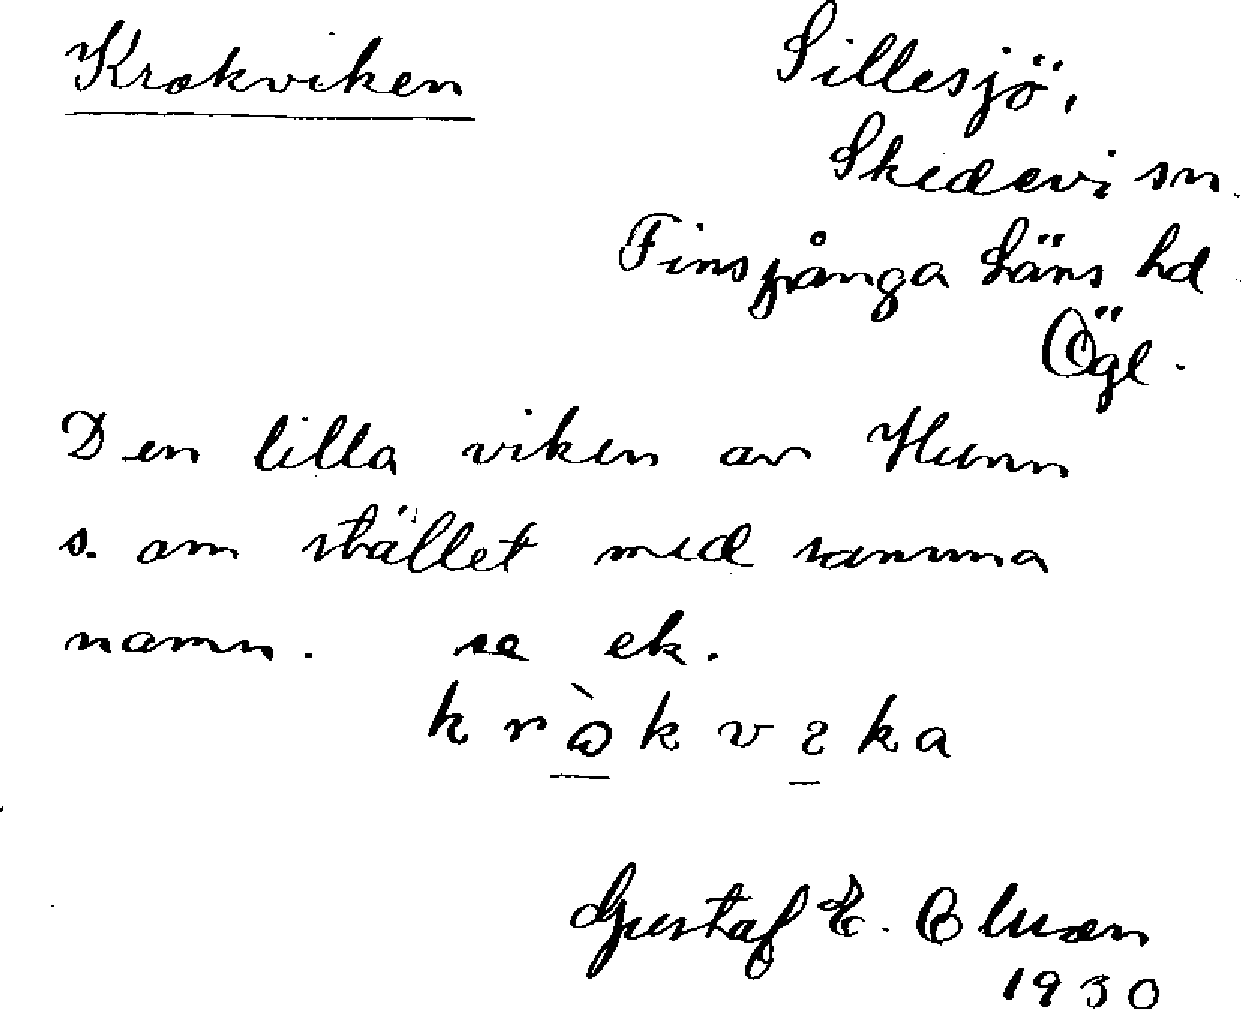 Krokviken
Sillesjö,
Skedevi sn.
Finspånga läns hd.
Ögl.
Den lilla viken av Hunn
s. om stället med samma
namn. se ek.
Gustaf E.
1930